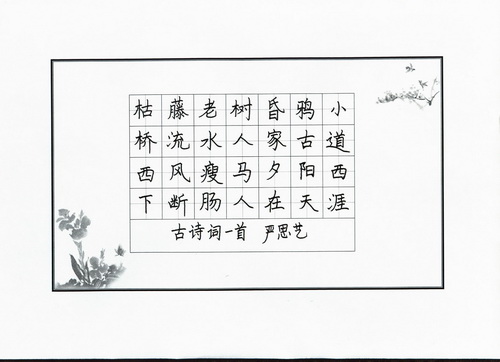 枯藤老树昏鸦小
桥流水人家古道
西风瘦马夕阳西
下断肠人在天涯
古诗词一首 严思艺